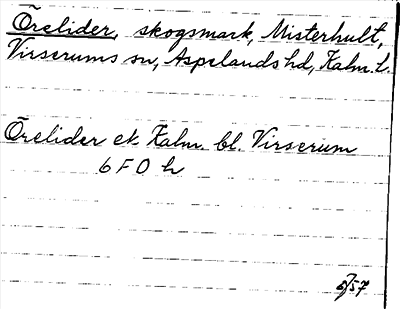 Örelider, skogsmark, Misterhult,
Virserums sn, Aspelands hd, Kalm. l.
Örelider ek Kalm. bl. Virserum
6 F 0 h